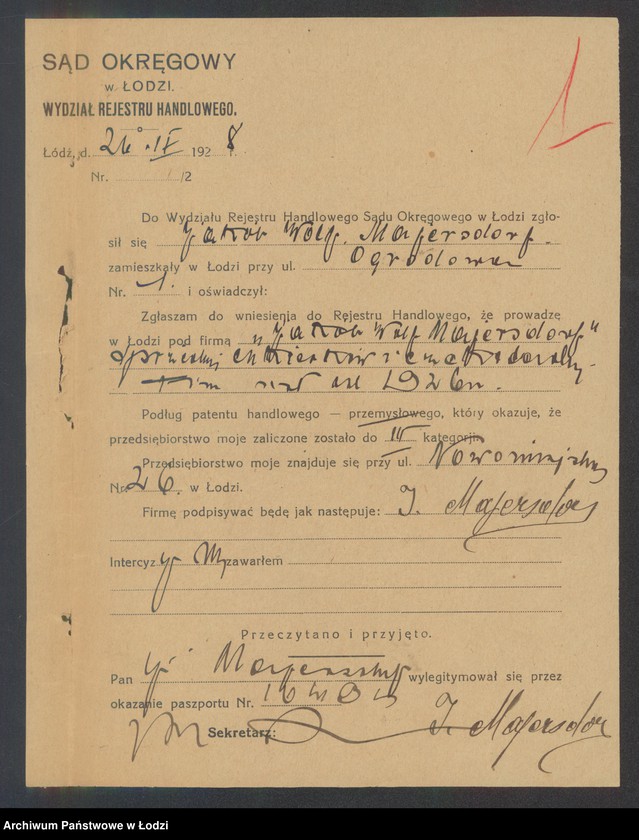 SĄD OKRĘGOWY
w ŁODZI.
WYDZIAŁ REJESTRU HANDLOWEGO.
Łódź, d. 26. IX 1928 r.
Nr. /2
Do Wydziału Rejestru Handlowego Sądu Okręgowego w Łodzi zgło-
sił się Jakób Wolf. Majersdorf.
zamieszkały w Łodzi przy ul. Ogrodowa
Nr. 1. i oświadczył:
Zgłaszam do wniesienia do Rejestru Handlowego, że prowadzę
w Łodzi pod firmą „Jakób Wolf Majersdorf"
sprzedaż cukierków i czekolady
od 1926 r.
Podług patentu handlowego — przemysłowego, który okazuje, że
przedsiębiorstwo moje zaliczone zostało do III kategorji.
Przedsiębiorstwo moje znajduje się przy ul. Nowomiejska
Nr. 26. w Łodzi.
Firmę podpisywać będę jak następuje: J. Majersdorf
Intercyzy nie zawarłem
Przeczytano i przyjęto.
Pan J. Majersdorf wylegitymował się przez
okazanie paszportu Nr.
Sekretarz: J. Majersdorf
Archiwum Państwowe w Łodzi